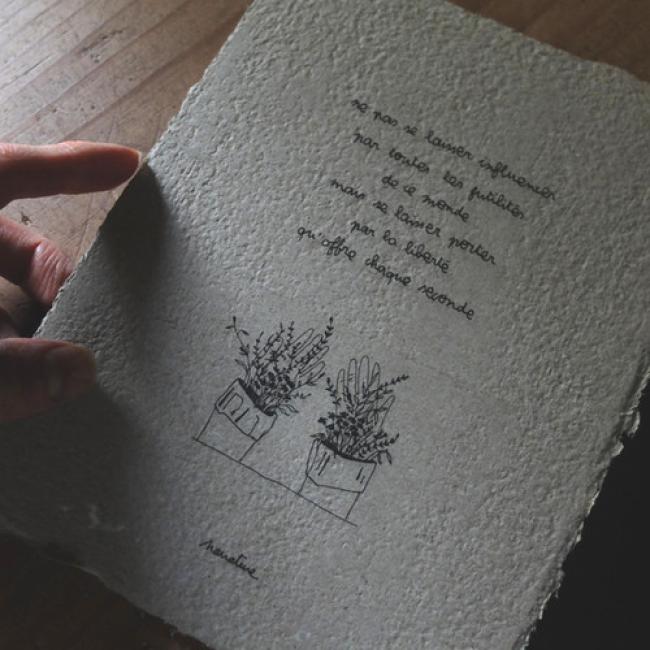 ne pas se laisser influencer
par toutes les futilités
de ce monde
mais se laisser porter
par la liberté
qu'offre chaque seconde